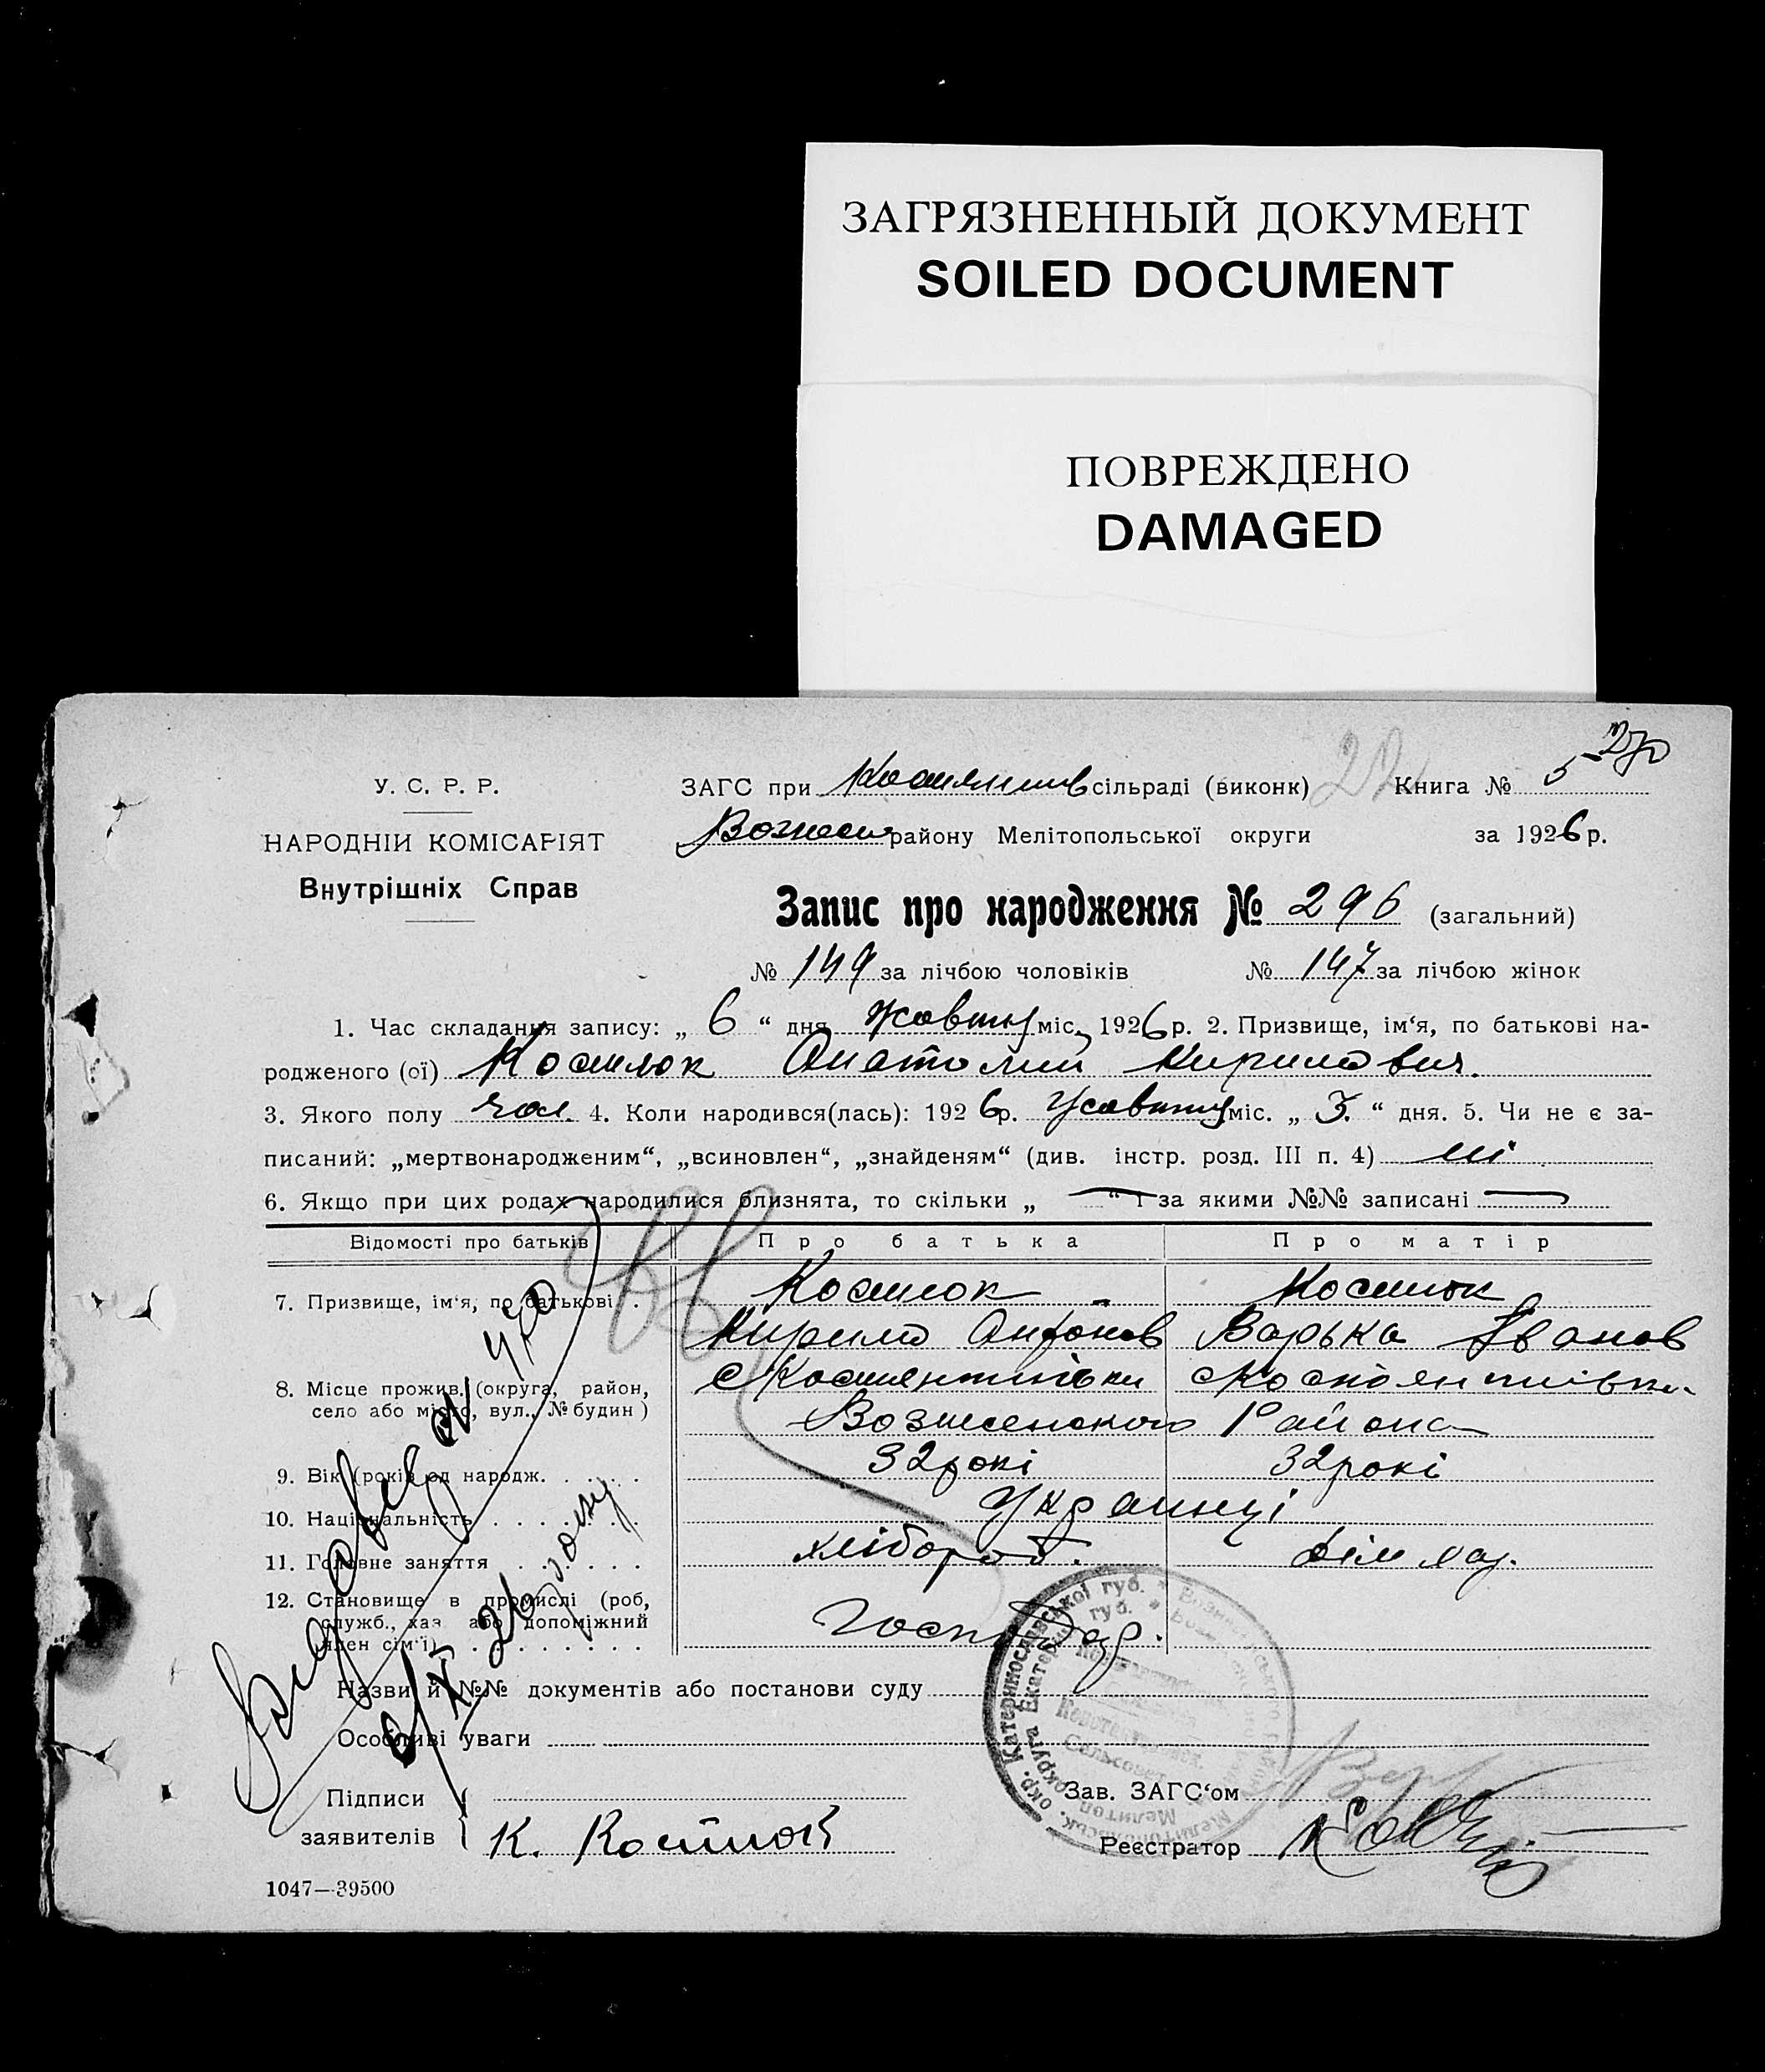 ЗАГРЯЗНЕННЫЙ ДОКУМЕНТ
SOILED DOCUMENT
ПОВРЕЖДЕНО
DAMAGED
27
У. С. Р. Р.
НАРОДНІЙ КОМІСАРІЯТ
Внутрішніх Справ
ЗАГС при сільраді (виконк) Книга № 5
Вознесен району Мелітопольської округи за 1926 р.
Запис про народження № 296 (загальний)
№ 149 за лічбою чоловіків № 147 за лічбою жінок
1. Час складання запису: „ 6 “ дня Жовтня міс. 1926 р. 2. Призвище, ім‘я, по батькові на-
родженого (ої) Костюк Анатолий Кирилович.
3. Якого полу чол. 4. Коли народився(лась): 1926 р. Жовтня міс. „ 3. “ дня. 5. Чи не є за-
писаний: „мертвонародженим“, „всиновлен“, „знайденям“ (див. інстр. розд. III п. 4) ні
6. Якщо при цих родах народилися близнята, то скільки „ — “ і за якими №№ записані —
Відомості про батьків Про батька Про матір
7. Призвище, ім‘я, по батькові . Костюк Костюк
Кирило Антонов Варька Іванов
8. Місце прожив. (округа, район, село або місто, вул., № будин) с Костянтинівки с Костянтинівки
Вознесенского Района
9. Вік (років од народж. . . . . 32 рокі 32 рокі
10. Національність . . . . . . . Украинці
11. Головне заняття . . . . . . хлібороб. дом хаз.
12. Становище в промислі (роб, служб., хаз або допоміжний член сім‘ї) . . . . . . . . . Господар.
Назви й №№ документів або постанови суду
Особливі уваги
Підписи
заявителів К. Костюк
Зав. ЗАГС‘ом
Реєстратор
1047—39500